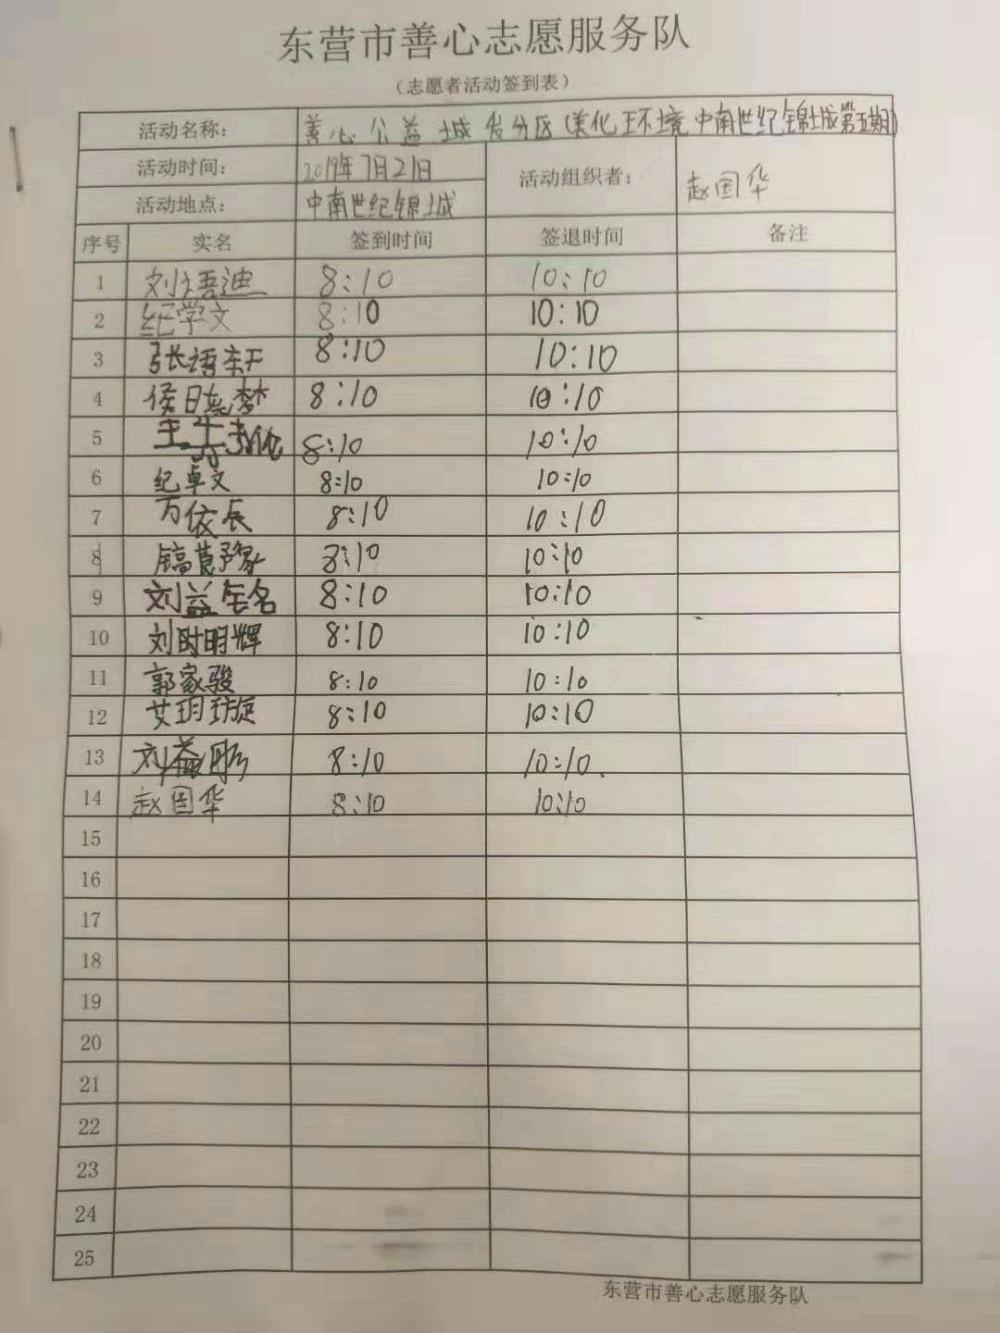 东营市善心志愿服务队
（志愿者活动签到表）
活动名称： 善心公益城发分区（美化环境中南世纪锦城第五期）
活动时间： 2019年7月21日 活动组织者： 赵国华
活动地点： 中南世纪锦城
序号 实名 签到时间 签退时间 备注
1 刘语迪 8:10 10:10
2 纪学文 8:10 10:10
3 张语轩 8:10 10:10
4 侯日燕梦 8:10 10:10
5 8:10 10:10
6 纪卓文 8:10 10:10
7 万依辰 8:10 10:10
8 8:10 10:10
9 刘益铭 8:10 10:10
10 刘时明辉 8:10 10:10
11 郭家骏 8:10 10:10
12 艾玥璇 8:10 10:10
13 刘益彤 8:10 10:10
14 赵国华 8:10 10:10
15
16
17
18
19
20
21
22
23
24
25
东营市善心志愿服务队